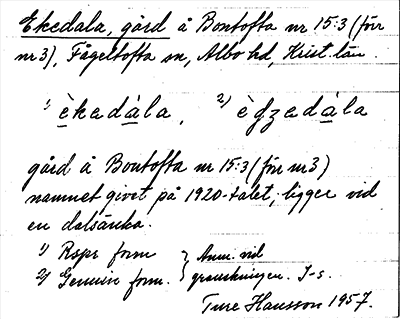 Ekedala, gård å Bontofta nr 15:3 (förr
nr 3), Fågeltofta sn, Albo hd, Krist. län.
1) èkedàla, 2) èǥzedàla
gård å Bontofta nr 15:3 (förr nr 3)
namnet givet på 1920-talet; ligger vid
en dalsänka.
1) Rspr form } Anm. vid
2) Genuin form. } granskningen. I-s.
Ture Hansson 1957.